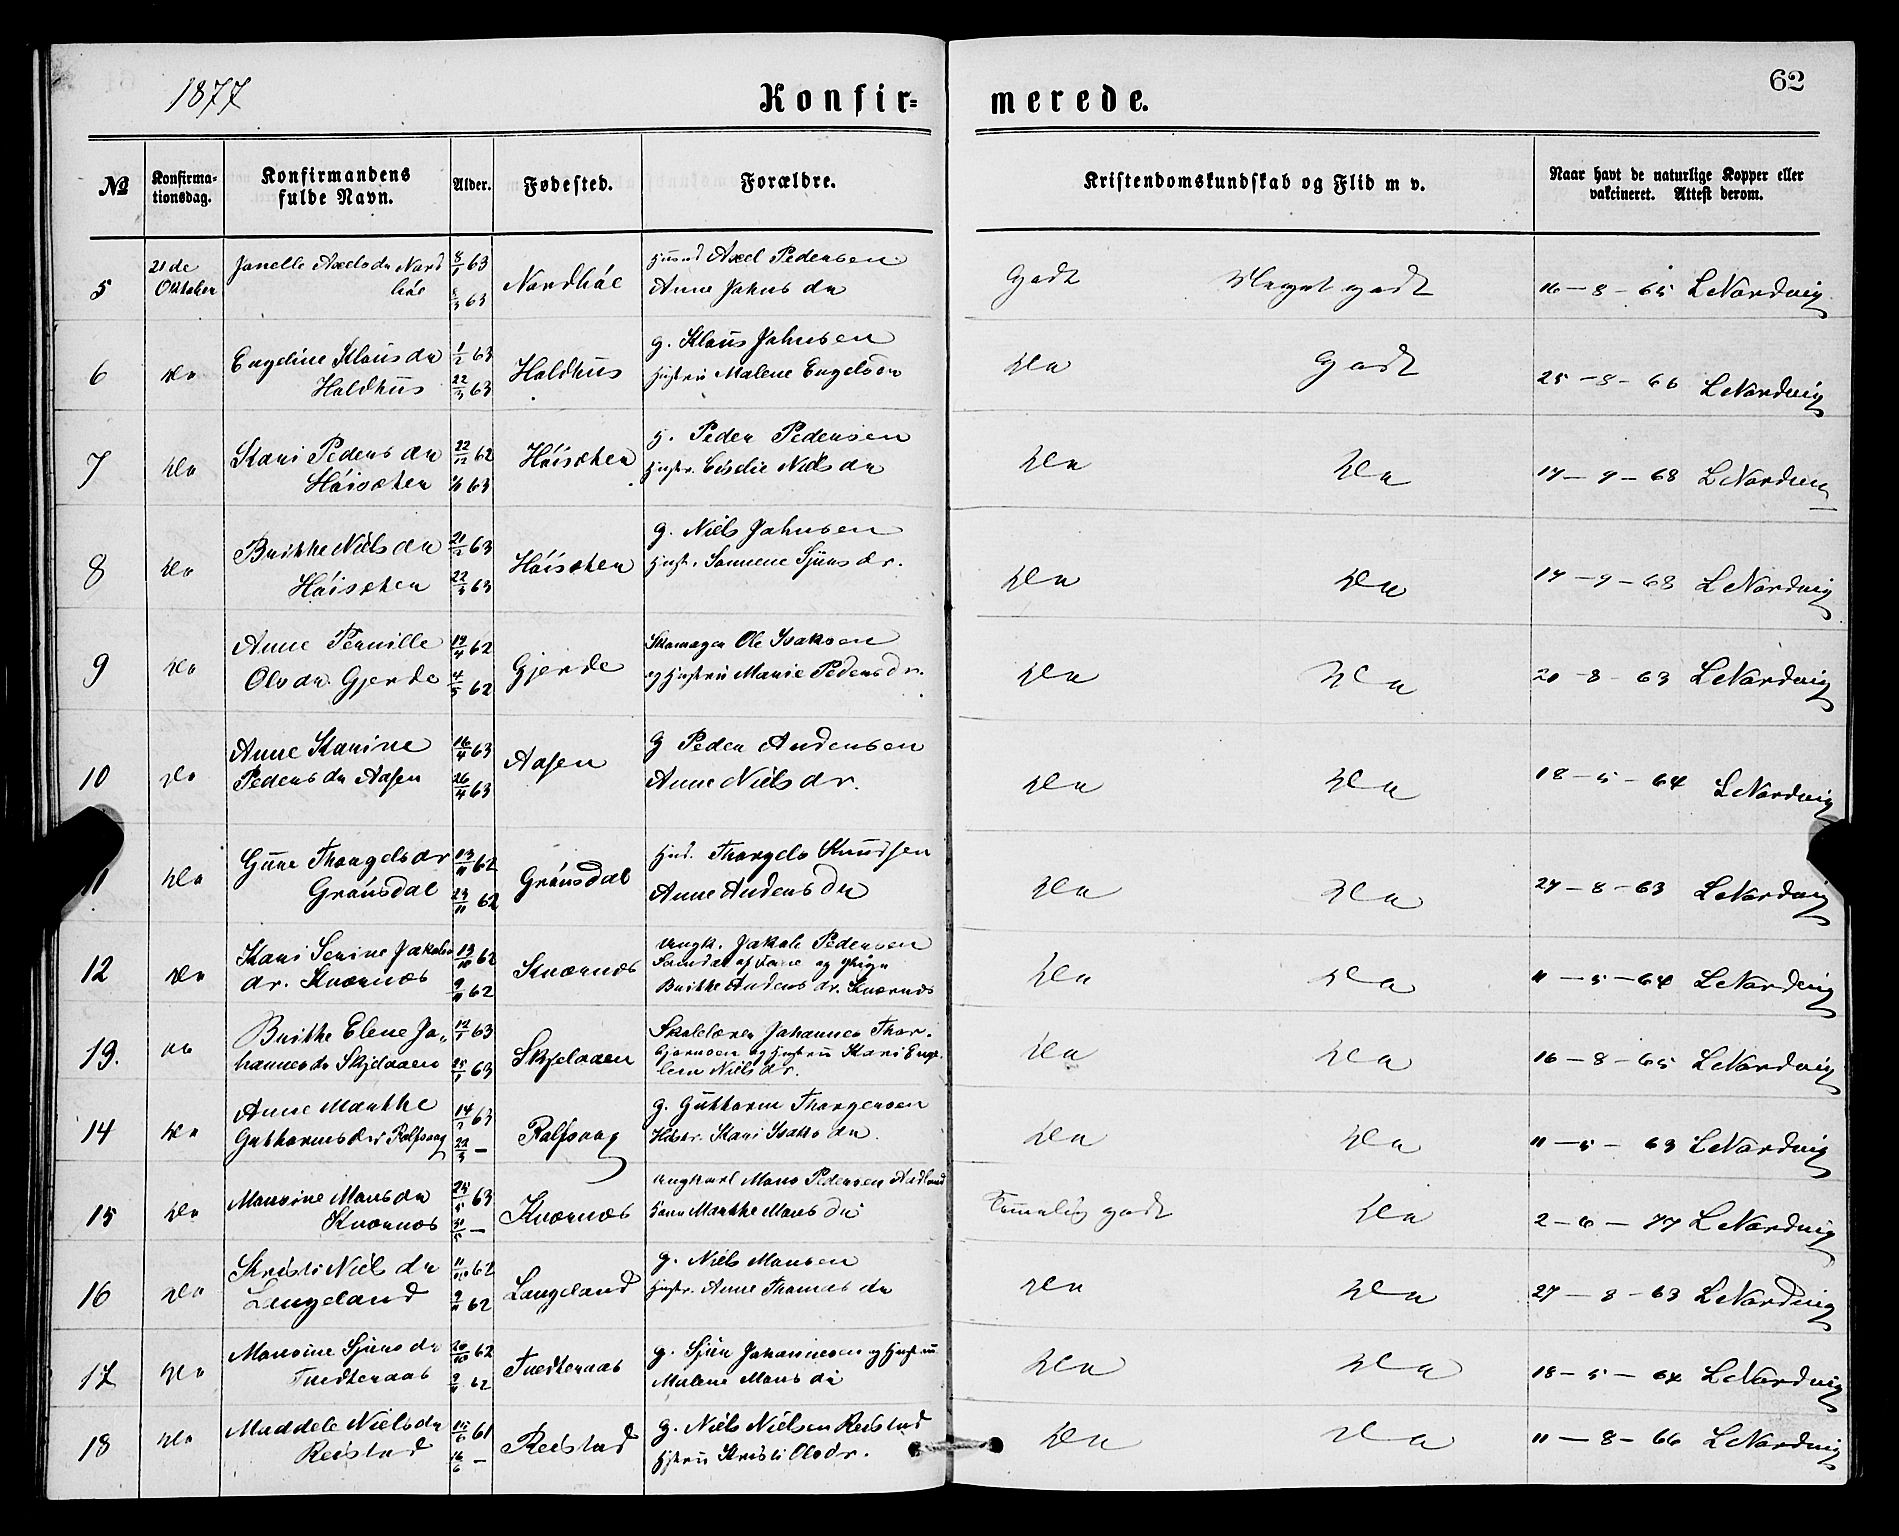 1877
62
Konfir=
merede.
№
Konfirma-
tionsdag.
Konfirmandens
fulde Navn.
Alder.
Fødested.
Forældre.
Kristendomskundskab og Flid m v.
Naar havt de naturlige Kopper eller
vakcineret. Attest derom.
5
21de
Oktober
Janelle Axelsdr Nord
høe
8/1 63
8/3 63
Nordhøe
Husmd Axel Pedersen
Anne Johns dr
Godt
Meget godt
16 – 8 – 65 L Nordvig
6
do
Engeline Klausdr
Holdhus
1/2 63
22/3 63
Holdhus
g. Klaus Johnsen
Hustru Malene Engelsdr
do
Godt
25 – 8 – 66 L Nordvig
7
do
Kari Peders dr
Høisæter
22/12 62
63
Høisæter
g. Peder Pedersen
Hustr. Niels dr
do
do
17 – 9 – 68 L Nordvig
8
do
Brithe Niels dr
Høisæter
63
22/3 63
Høisæter
g. Niels Johnsen
Hust. Sjurs dr.
do
do
17 – 9 – 68 L Nordvig
9
do
Anne Pernille
Olsdr. Gjerde
19/4 62
4/5 62
Gjerde
Skomager Ole Isaksen
og Hustru Marie Pedersdr.
do
do
20 – 8 – 63 L Nordvig
10
do
Anne Karine
Peders dr Aasen
16/4 63
26/4 63
Aasen
G Peder Andersen
Anne Niels dr.
do
do
18 – 5 – 64 L Nordvig
do
Gure Thorgels dr
Grønsdal
13/11 62
23/11 62
Grønsdal
Hmd. Thorgels Knudsen
Anne Anders dr
do
do
27 – 8 – 63 L Nordvig
12
do
Kari Serine Jakobs
dr. Kværnæs
13/10 62
9/11 62
Kværnæs
Ungk. Jakob Pedersen
af Fane og Pige
Brithe Anders dr. Kværnæs
do
do
11 – 5 – 64 L Nordvig
19.
do
Brithe Elene Jo-
hannesdr Skjelaaen
12/1 63
25/1 63
Skjelaaen
Skolelærer Johannes Thor-
bjørnsen og Hustru Kari Enge-
Niels dr.
do
do
16 – 8 – 65 L Nordvig
14
do
Anne Marthe
Guttormsdr Rolfsvaag
14/2 63
22/3 –
Rolfsvaag
g. Guttorm Thorgersen
Hustr. Kari Isaks dr.
do
do
11 – 5 – 63 L Nordvig
15
do
Monsine Monsdr
Kværnæs
25/5 63
31/5 –
Kværnæs
Ungkarl Mons Pedersen
Marthe Mons dr
Temmelig godt
do
2 – 6 – 77 L Nordvig
16
do
Kristi Niels dr
Langeland
11/10 62
9/11 62
Langeland
g. Niels Monsen
Hustr. Anne Thomas dr
do
do
27 – 8 – 63 L Nordvig
17
do
Monsine Sjurs dr
Tvedteraas
20/10 62
9/11 62
Tvedteraas
g. Sjur Johannesen og Hustru
Malene Mons dr
do
do
18 – 5 – 64 L Nordvig
18
do
Maddele Nielsdr
Reistad
15/5 61
16/6 –
Reistad
g. Niels Nielsen Reistad
Hstru Kristi Olsdr.
do
do
11 – 8 – 66 L Nordvig